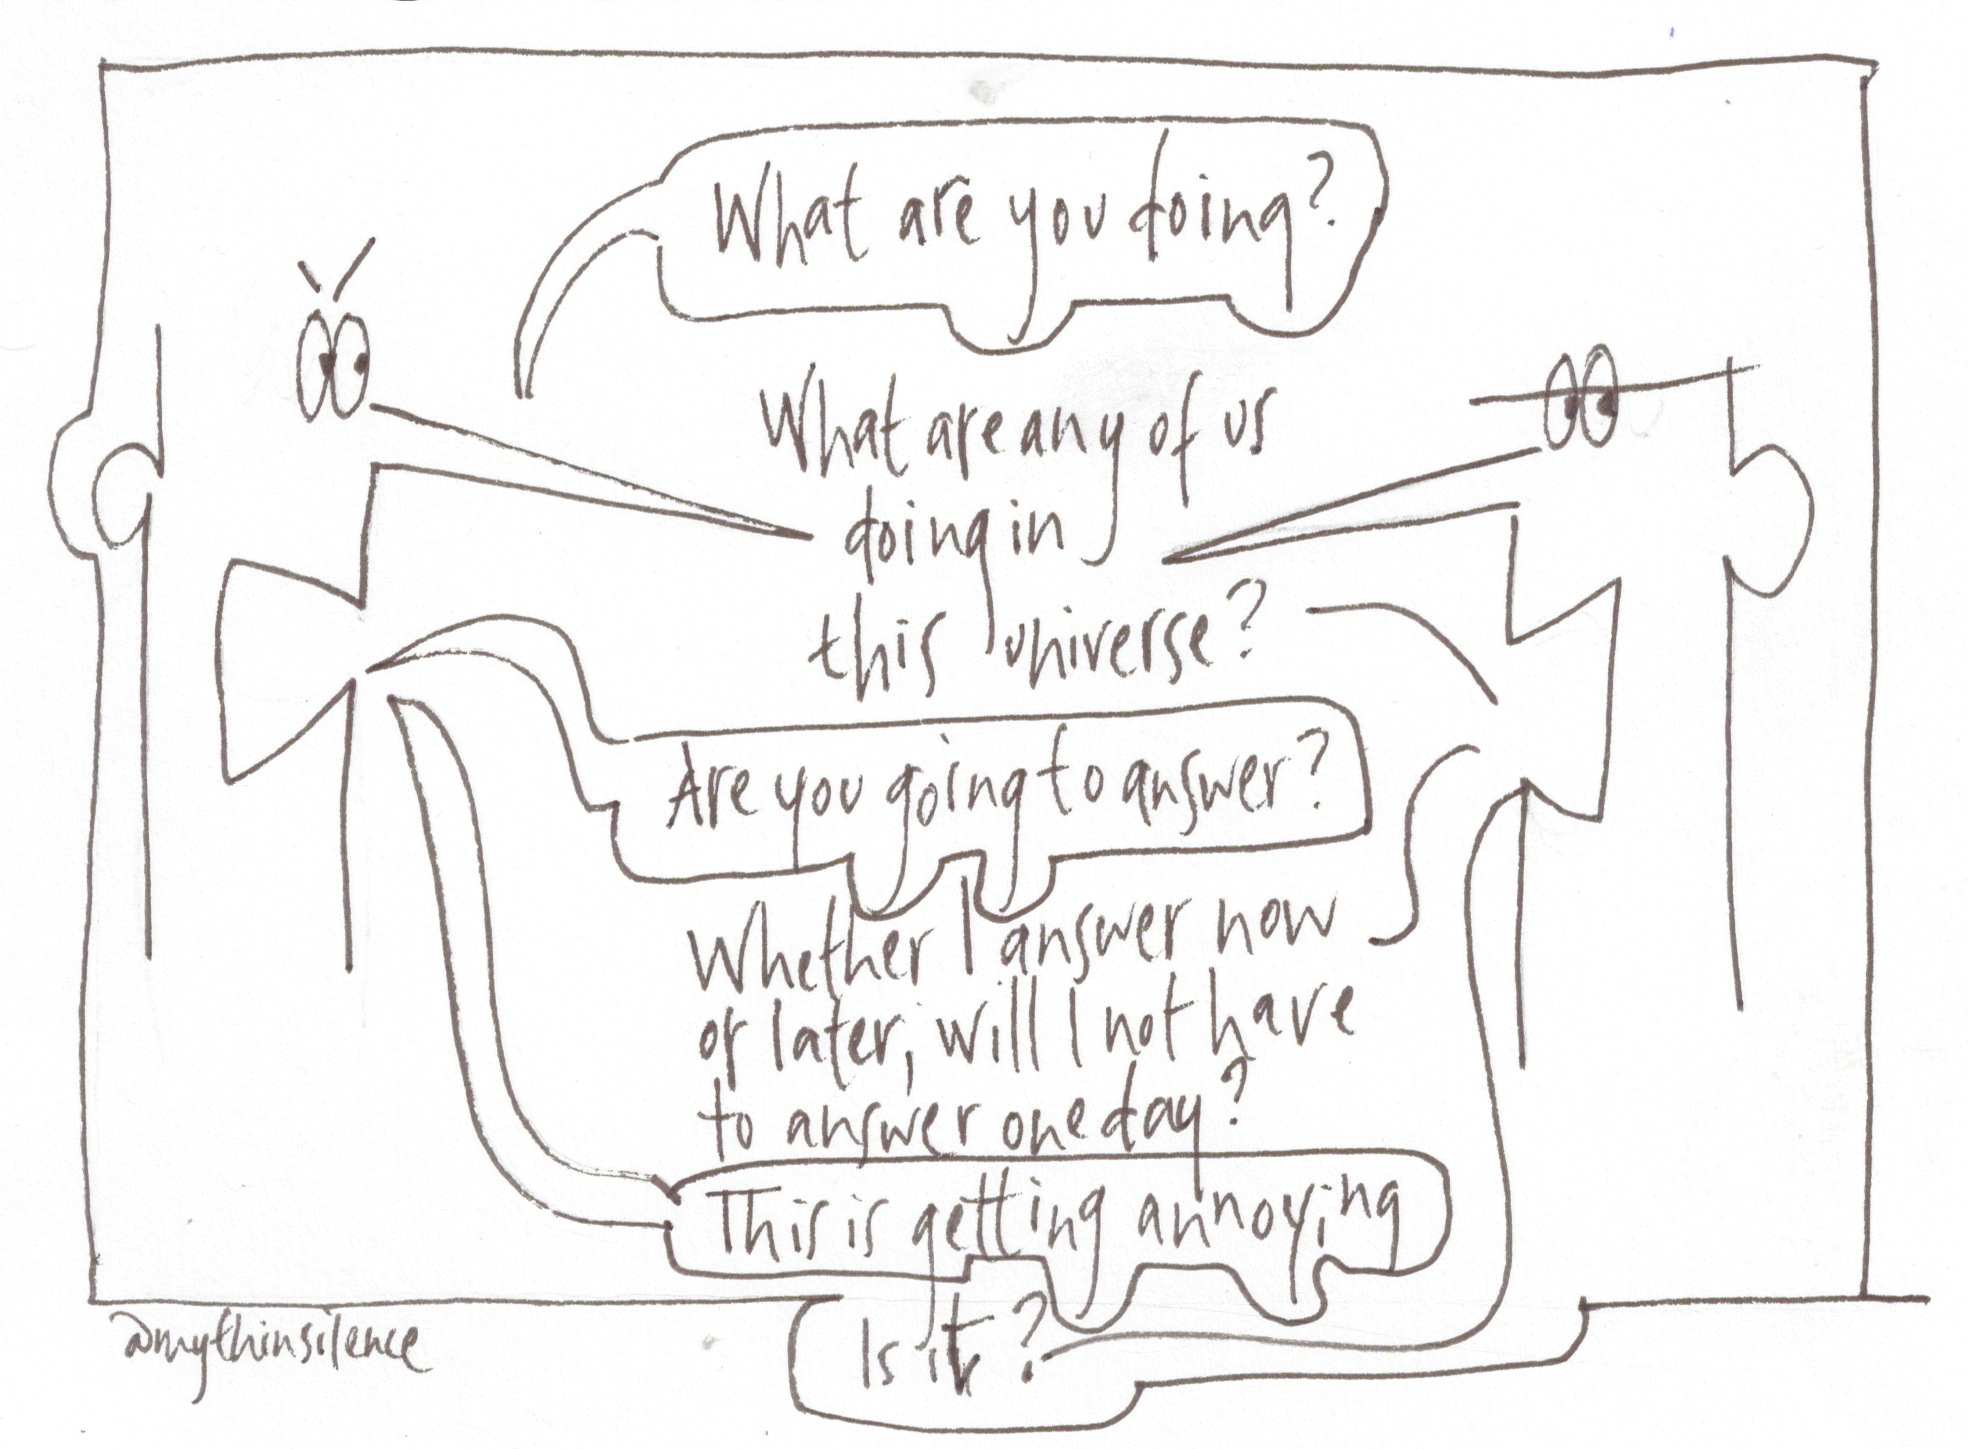 What are you doing?
What are any of us
doing in
this universe?
Are you going to answer?
Whether I answer now
or later, will I not have
to answer one day?
This is getting annoying
Is it?
@mythinsilence